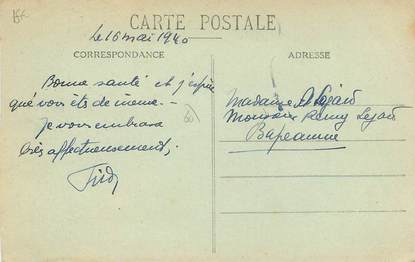 CARTE POSTALE
Le 16 mai 1940
CORRESPONDANCE
ADRESSE
Bonne santé et j'espère
que vous êts de même. -
Je vous embrasse
très affectueusement,
Madame
Monsieur Rémy Lejard
Bapeaume